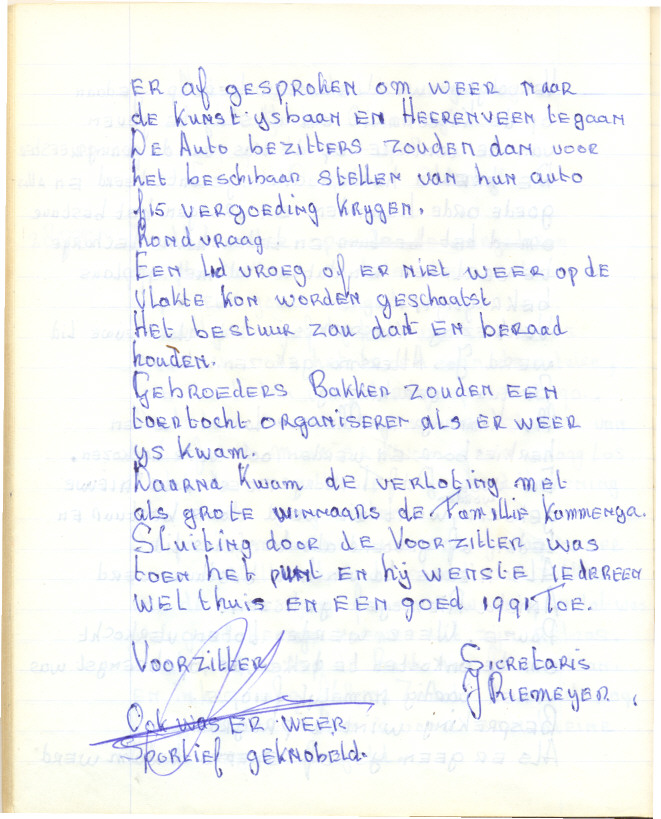 ER af gesproken om weer naar
de Kunstijsbaan en Heerenveen te gaan
De Auto bezitters zouden dan voor
het beschibaar stellen van hun auto
f15 vergoeding krygen.
Rondvraag.
Een lid vroeg of er niet weer op de
vlakte kon worden geschaatst
Het bestuur zou dat en beraad
houden.
Gebroeders Bakker zouden een
toertocht organiseren als er weer
ys kwam.
Daarna kwam de verloting met
als grote winnaars de Familie Kammenga.
Sluiting door de Voorzitter was
toen het punt en hij wenste iedereen
wel thuis en een goed 1991 toe.
Voorzitter Secretaris
J Riemeyer.
Ook was er weer
Sportief geknobeld.